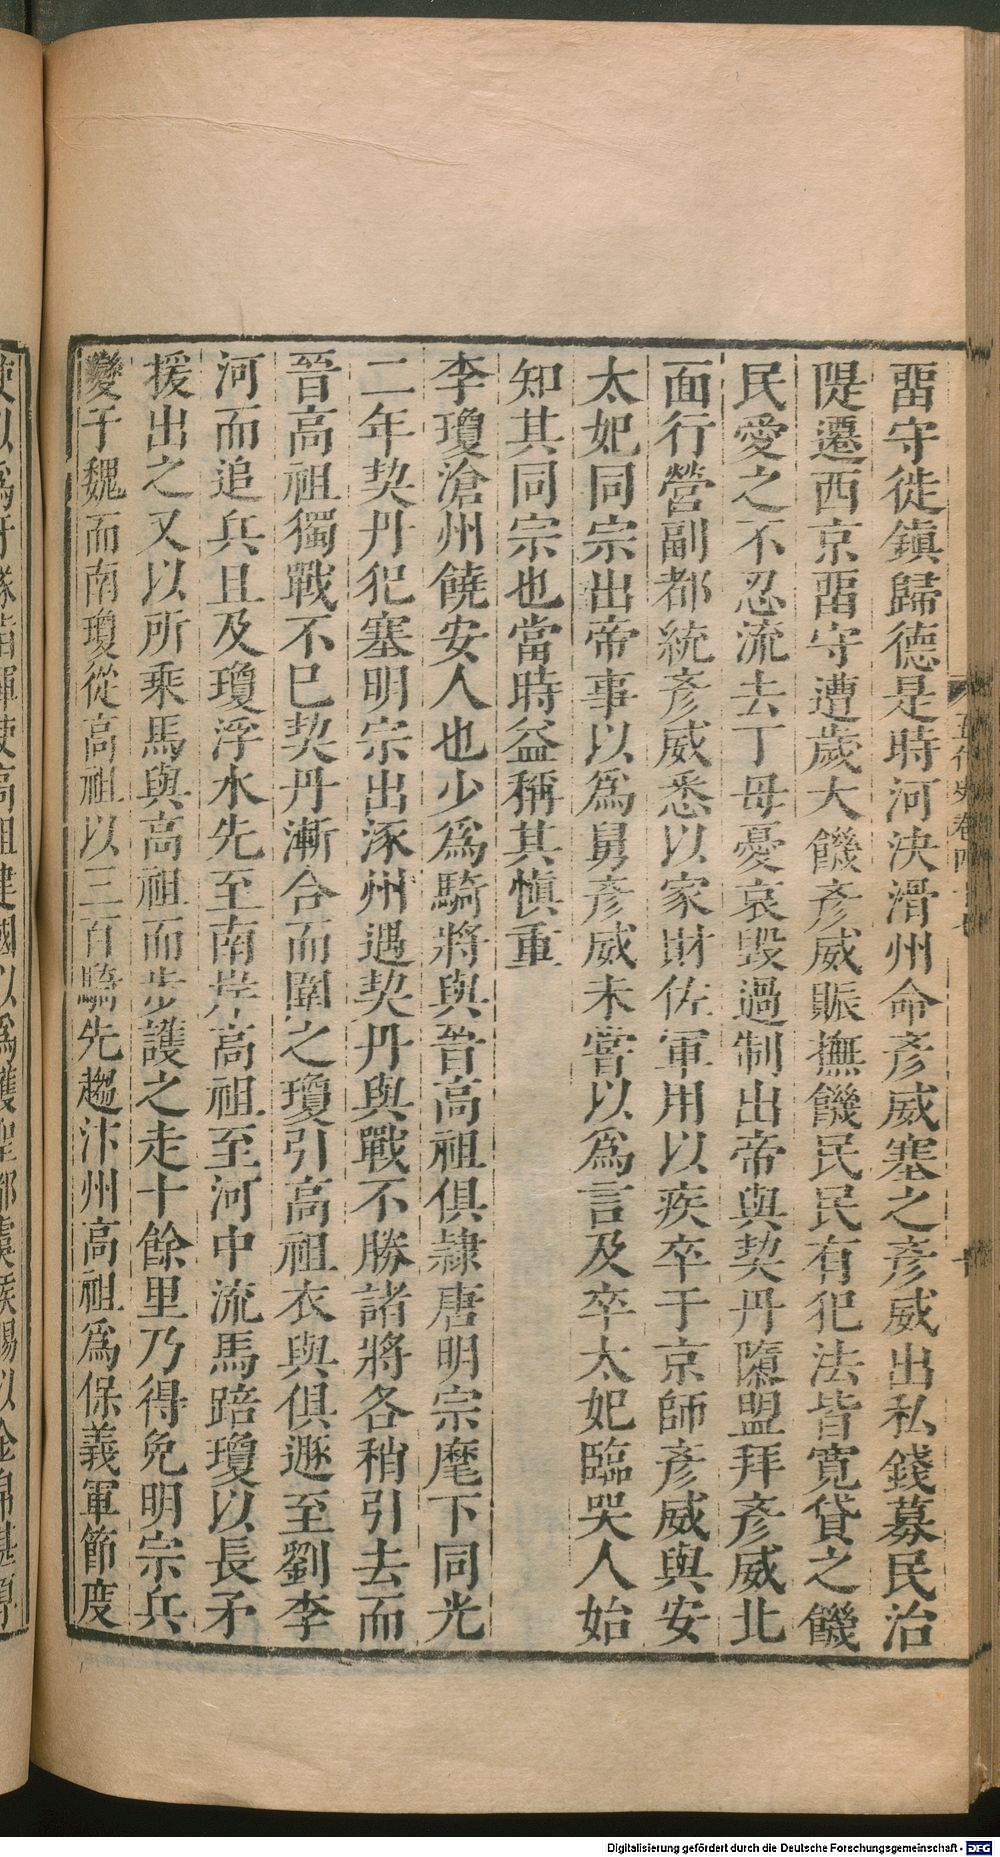 畱守徙鎮歸德是時河決滑州命彥威塞之彥威出私錢募民治
隄遷西京畱守遭歲大饑彥威賑撫饑民民有犯法皆寬貸之饑
民愛之不忍流去丁母憂哀毀過制出帝與契丹隳盟拜彥威北
面行營副都統彥威悉以家財佐軍用以疾卒于京師彥威與安
太妃同宗出帝事以爲舅彥威未嘗以爲言及卒太妃臨哭人始
知其同宗也當時益稱其愼重
李瓊滄州饒安人也少爲騎將與晉高祖俱隸唐明宗麾下同光
二年契丹犯塞明宗出涿州遇契丹與戰不勝諸將各稍引去而
晉高祖獨戰不巳契丹漸合而圍之瓊引高祖衣與俱遯至劉李
河而追兵且及瓊浮水先至南岸高祖至河中流馬踣瓊以長矛
援出之又以所乘馬與高祖而步護之走十餘里乃得免明宗兵
變于魏而南瓊從高祖以三百騎先趨汴州高祖爲保義軍節度
Digitalisierung gefördert durch die Deutsche Forschungsgemeinschaft - DFG